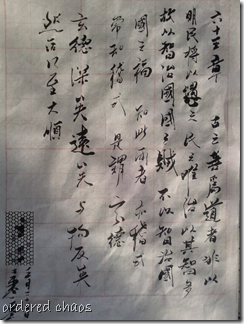 六十五章 古之善為道者非以
明民將以愚之民之難治以其智多
故以智治國國之賊不以智治國
國之福 知此兩者亦稽式
常知稽式 是謂玄德
玄德深矣遠矣与物反矣
然后乃至大順
ordered chaos